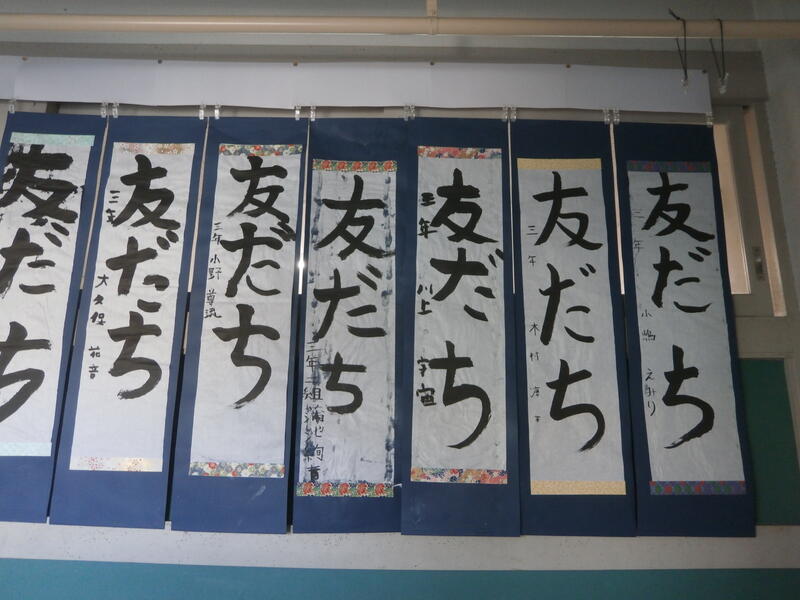 友だち
友だち
三年
大久保 花音
友だち
三年 小野
友だち
三年 組
友だち
三年
川上 宇宙
友だち
三年
木村
友だち
三年
小嶋 えみり